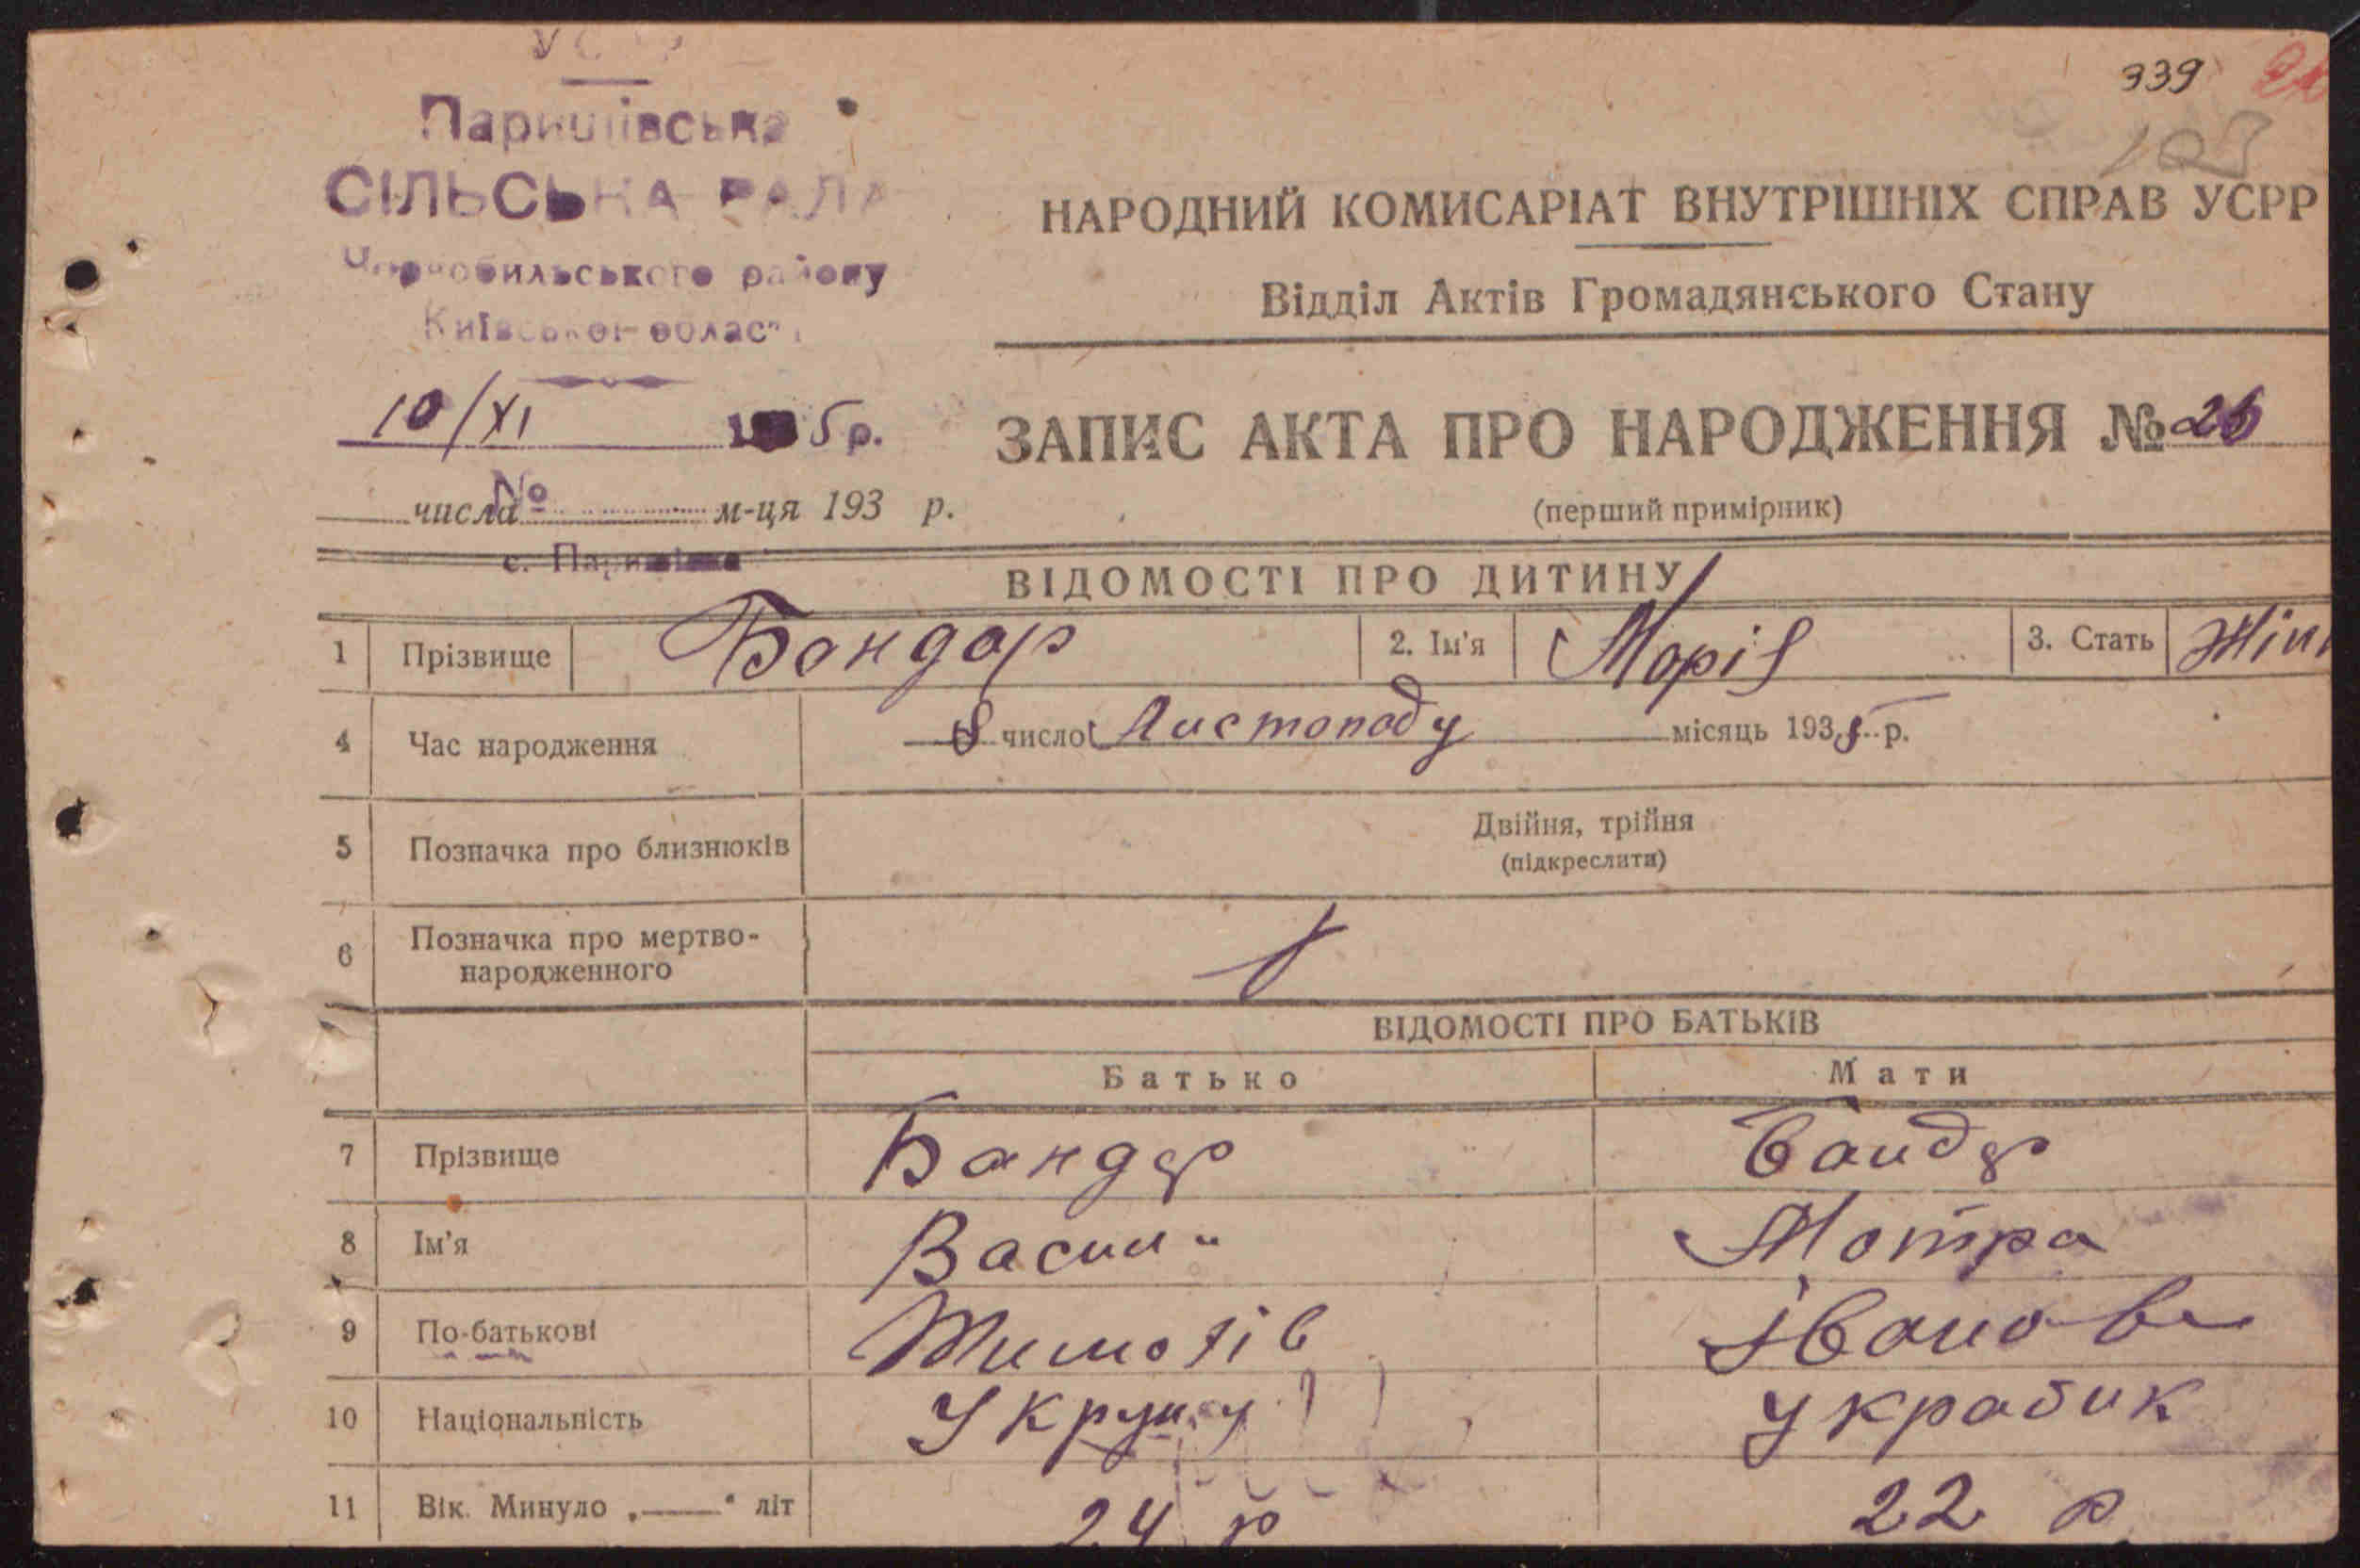 339
Паришівська
СІЛЬСЬКА РАДА
Чорнобильського району
Київської област
10/XI 5 р.
№
числа м-ця 193 р.
с. Паришів
НАРОДНИЙ КОМИСАРІАТ ВНУТРІШНІХ СПРАВ УСРР
Відділ Актів Громадянського Стану
ЗАПИС АКТА ПРО НАРОДЖЕННЯ №
(перший примірник)
ВІДОМОСТІ ПРО ДИТИНУ
1 Прізвище Бондар 2. Ім'я Марія 3. Стать Жін
4 Час народження 8 число Листопаду місяць 1935 р.
5 Позначка про близнюків Двійня, трійня
(підкреслити)
6 Позначка про мертво-
народженного
ВІДОМОСТІ ПРО БАТЬКІВ
Батько Мати
7 Прізвище Бандар Бандар
8 Ім'я Васил Мотра
9 По-батькові Тимофів Іванов
10 Національність
11 Вік. Минуло „——“ літ 24 р 22 р